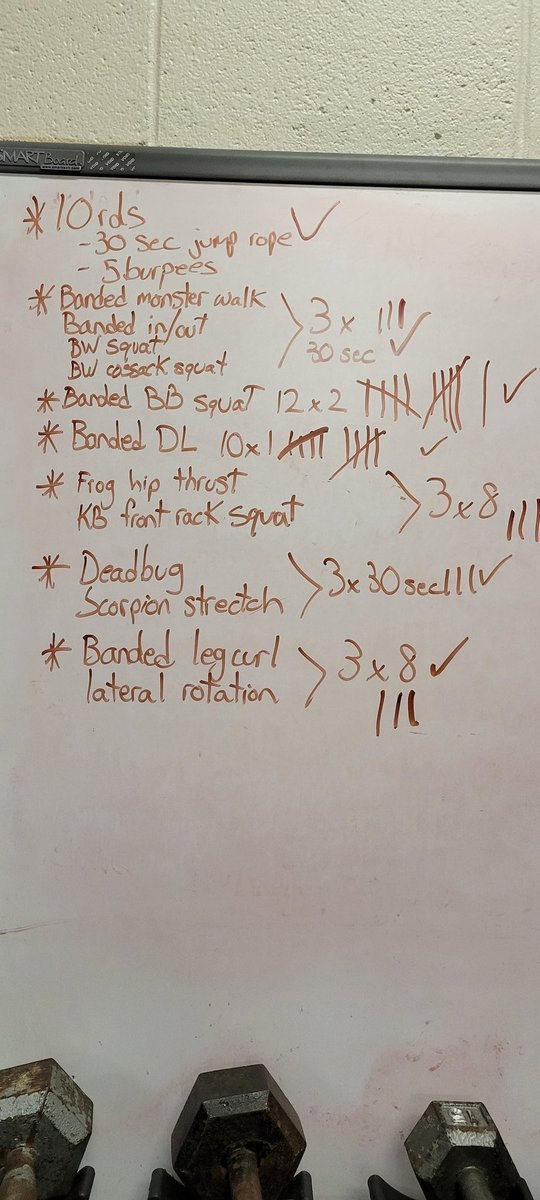 SMART Board
www.smarttech.com
* 10 rds ✓
- 30 sec jump rope
- 5 burpees
* Banded monster walk
Banded in/out
BW squat
BW cossack squat
> 3 x ||| ✓
30 sec ✓
* Banded BB squat 12 x 2 |||| |||| | ✓
* Banded DL 10 x 1 |||| |||| ✓
* Frog hip thrust
KB front rack squat
> 3 x 8 |||
* Deadbug
Scorpion strectch
> 3 x 30 sec ||| ✓
* Banded leg curl
lateral rotation
> 3 x 8 ✓
|||